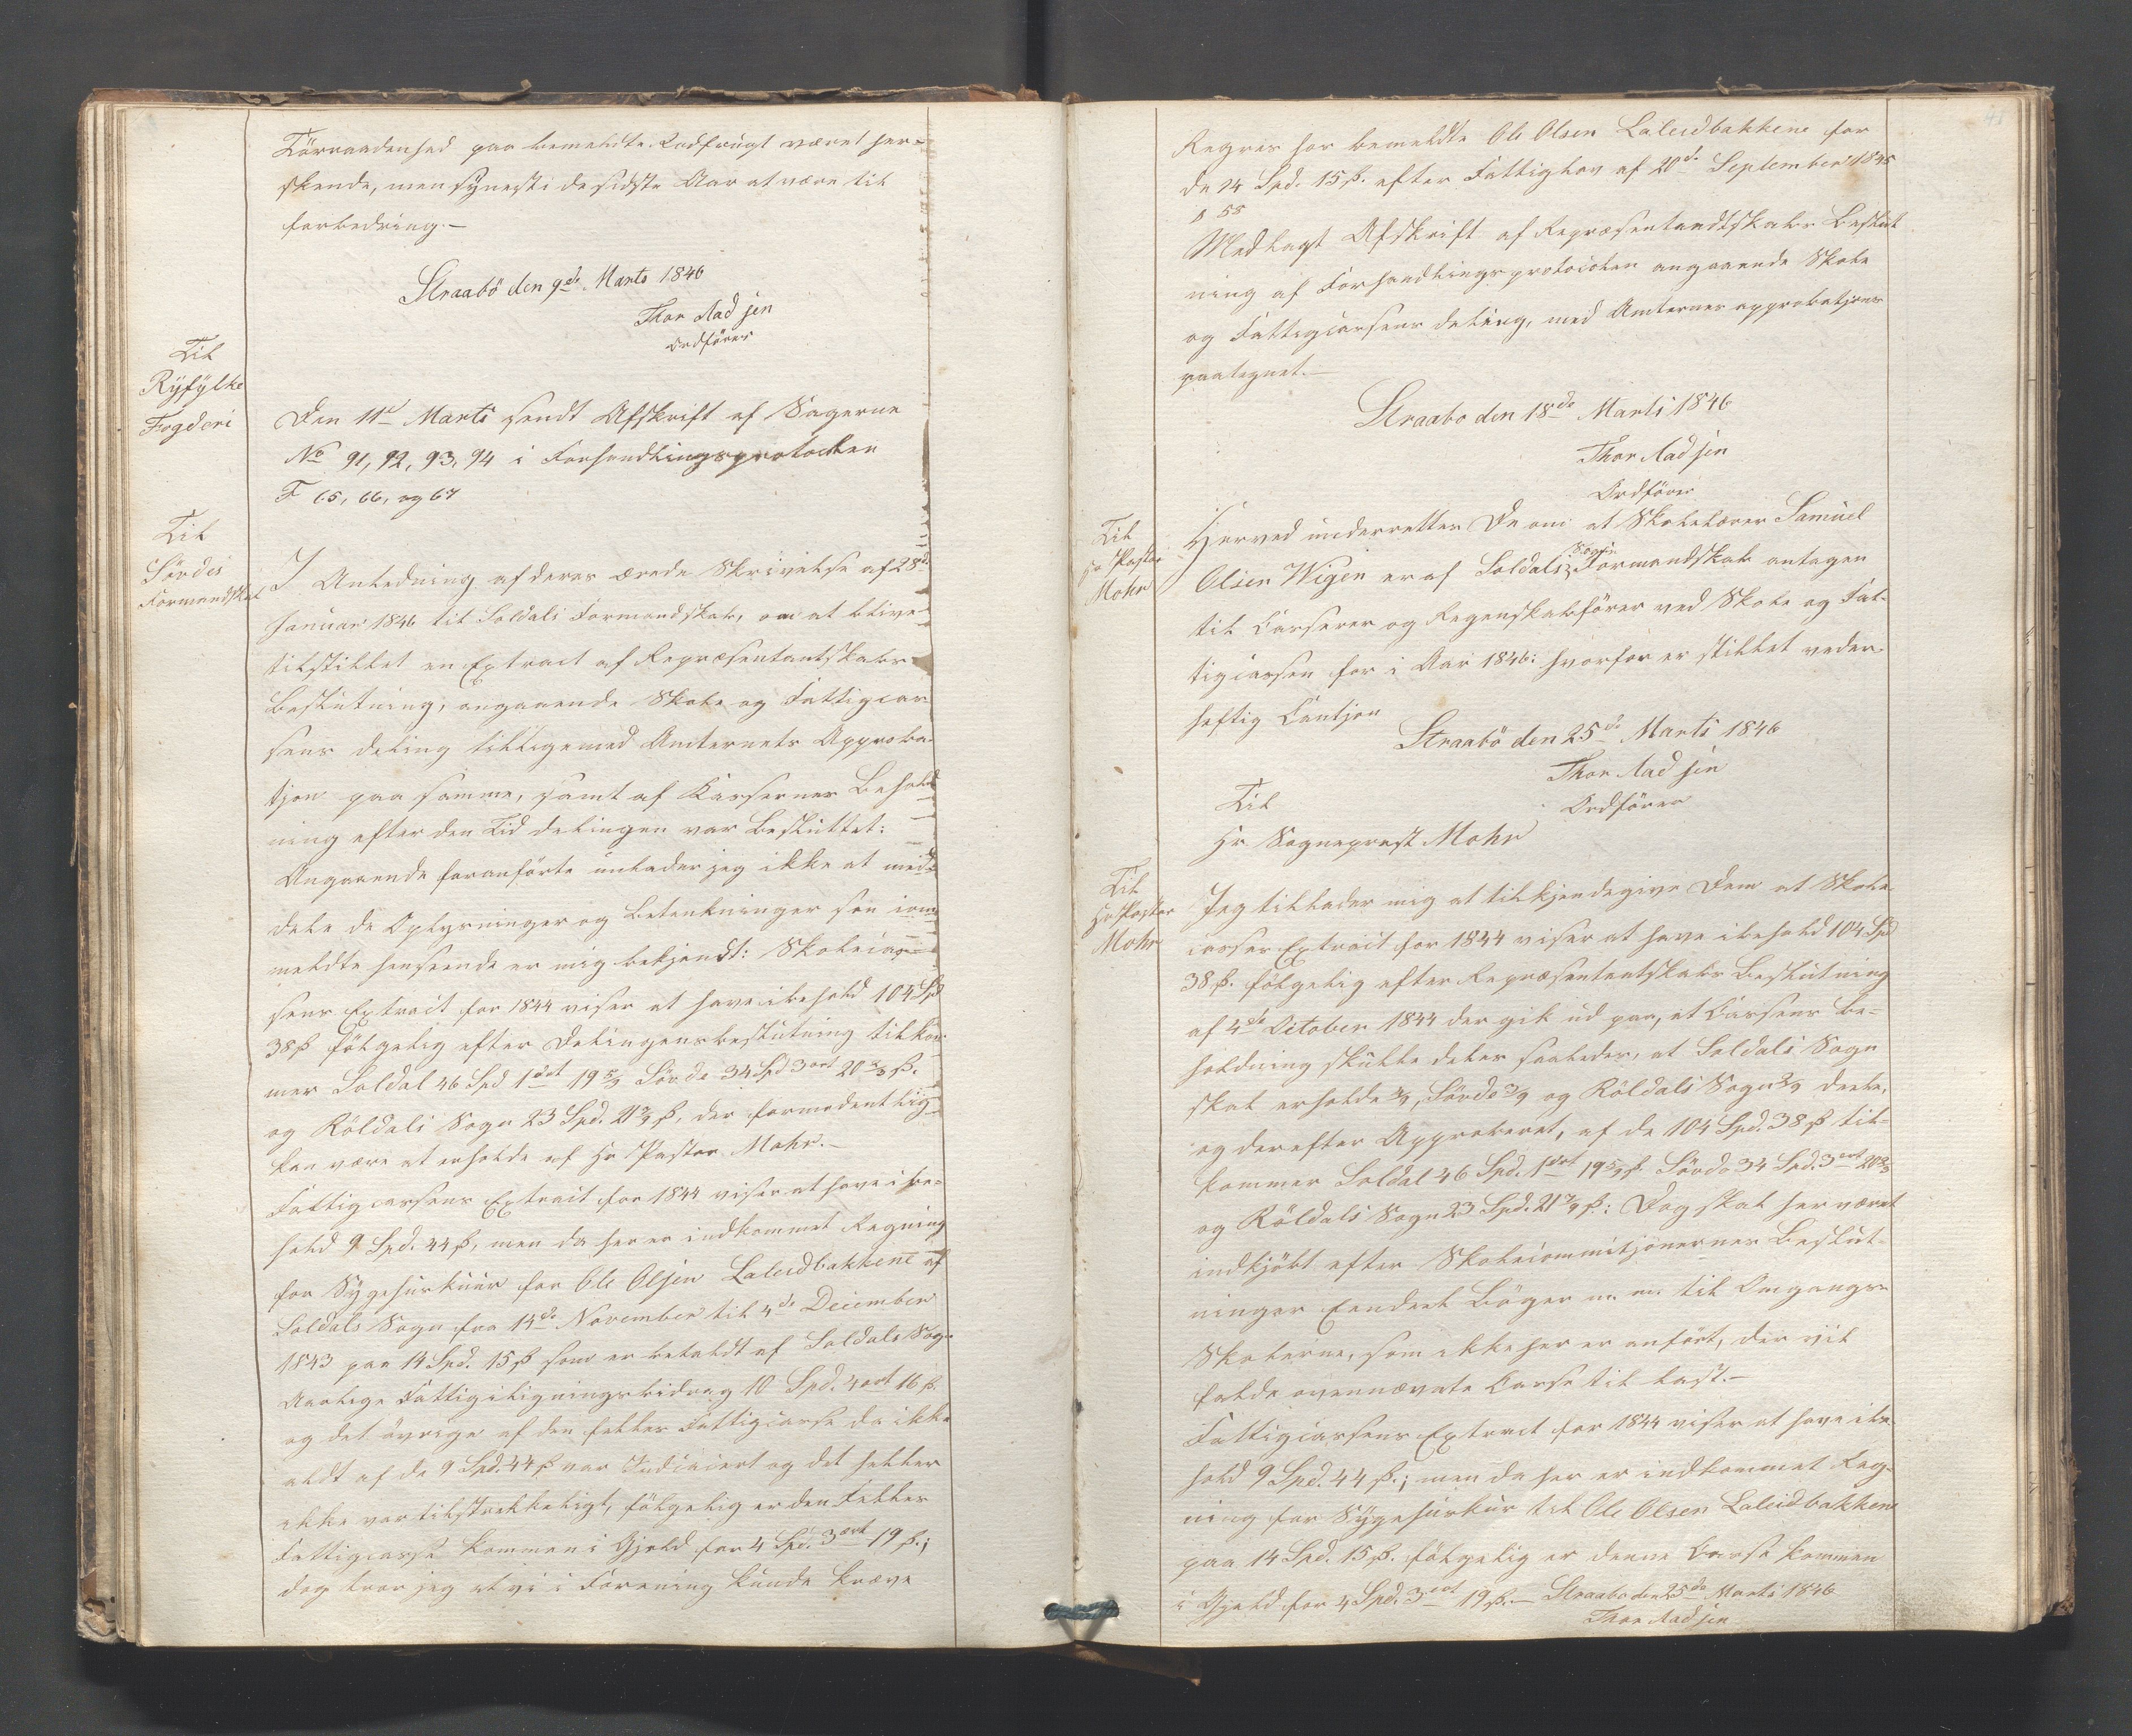 Törraadenhed paa bemeldte Rodfrugt været her-
skende, men synest i de sidste Aar at være til
forbedring.-
Straabö den 9de Marts 1846
Thor Aadsen
Ordförer
Til
Ryfylke
Fogderi
Den 11te Marts sendt Afskrift af Sagerne
No 91, 92, 93, 94 i Forhandlingsprotocollen
F 65, 66, og 67
Til
Sövdes
Formandskab
I Anledning af deres ærede Skrivelse af 28de
Januar 1846 til Soldals Formandskab, om at blive
tilstillet en Extract af Repræsentantskabs
Beslutning, angaaende Skole og Fattigcas
sens deling tilligemed Amternets Approba-
tjon paa samme, samt af Kassernes Behold
ning efter den Tid delingen var Besluttet:
Angaaende foranförte unlader jeg ikke at med-
dele de Oplysninger og Betenkninger som iom
meldte henseende er mig bekjendt: Skolecas-
sens Extract for 1844 viser at have ibehold 104 Spd
38 ß fölgelig efter Delingensbeslutning tilkom
mer Soldal 46 Spd 1ort 19 5/9 Sövde 34 Spd 3ort 20 2/3 ß.
og Röldals Sogn 23 Spd. 21 7/9 ß, der formodentlig
kan være at erholde af Hr Pastor Mohr.-
Fattigcassens Extract for 1844 viser at have i be-
hold 9 Spd. 44 ß, men da her er indkommet Regning
for Sygehuskuur for Ole Olsen Laleidbakkene af
Soldals Sogn fra 14de November til 4de December
1843 paa 14 Spd. 15 ß som er betaldt af Soldals Sogn
Aarlege Fattigiligningsbidrag 10 Spd. 4ort 16 ß.
og det övrige af den felles Fattigcasse da ikke
aldt af de 9 Spd. 44 ß var Indcacert og det heller
ikke var tilstrekkeligt, fölgelig er den Felles
Fattigcasse kommen i Gjeld for 4 Spd. 3ort 19 ß.;
dog tror jeg at vi i Forening kunde kræve
Regres hos bemeldte Ole Olsen Laleidbakkene for
de 14 Spd. 15 ß. efter Fattiglov af 20de September 1845
§ 55
Medlagt Afskrift af Repræsentandtskabs Beslut
ning af Forhandlingsprotocolen angaaende Skole
og Fattigcassens deling, med Amternes approbatjons
paategnet.-
Straabo den 18de Marts 1846
Thor Aadsen
Ordförer
Til
Hr Pastor
Mohr
Herved underretter De om at Skolelærer Samuel
Olsen Wigen er af Soldals Sogns Formandskab antagen
til Casserer og Regenskabsförer ved Skole og Fat-
tigcassen for i Aar 1846: hvorfor er stillet veder-
heftig Cautjon
Straabö den 25de Marts 1846
Thor Aadsen
Ordförer
Til
Hr. Sogneprest Mohr
Til
Hr Pastor
Mohr
Jeg tillader mig at tilkjendegive Dem at Skole
casses Extract for 1844 viser at have ibehold 104 Spd
38 ß. fölgelig efter Repræsentantskabs Beslutning
af 4de October 1844 der gik ud paa, at Cassens Be-
holdning skulle deles saaledes, at Soldals Sogn
skal erholde 4/9, Sövde 3/9 og Röldals Sogn 2/9 deele,
og derefter Approberet, af de 104 Spd. 38 ß til-
kommer Soldal 46 Spd. 1ort 19 5/9 ß. Sövde 34 Spd. 3ort 20 2/3
og Röldals Sogn 23 Spd. 21 7/9 ß: Dog skal her været
indkjöbt efter Skolecommitjonernes Beslut-
ninger Eendeel Böger m. m. til Omgangs-
Skolerne, som ikke her er anfört, der vil
falde ovennævnte Casse til last.-
Fattigcassens Extract for 1844 viser at have ibe
hold 9 Spd. 44 ß.; men da her er indkommet Reg-
ning for Sygehuskur til Ole Olsen Laleidbakkene
paa 14 Spd. 15 ß. fölgelig er denne Casse kommen
i Gjeld for 4 Spd. 3ort 19 ß.- Straabo den 25de Marts 1846
Thor Aadsen